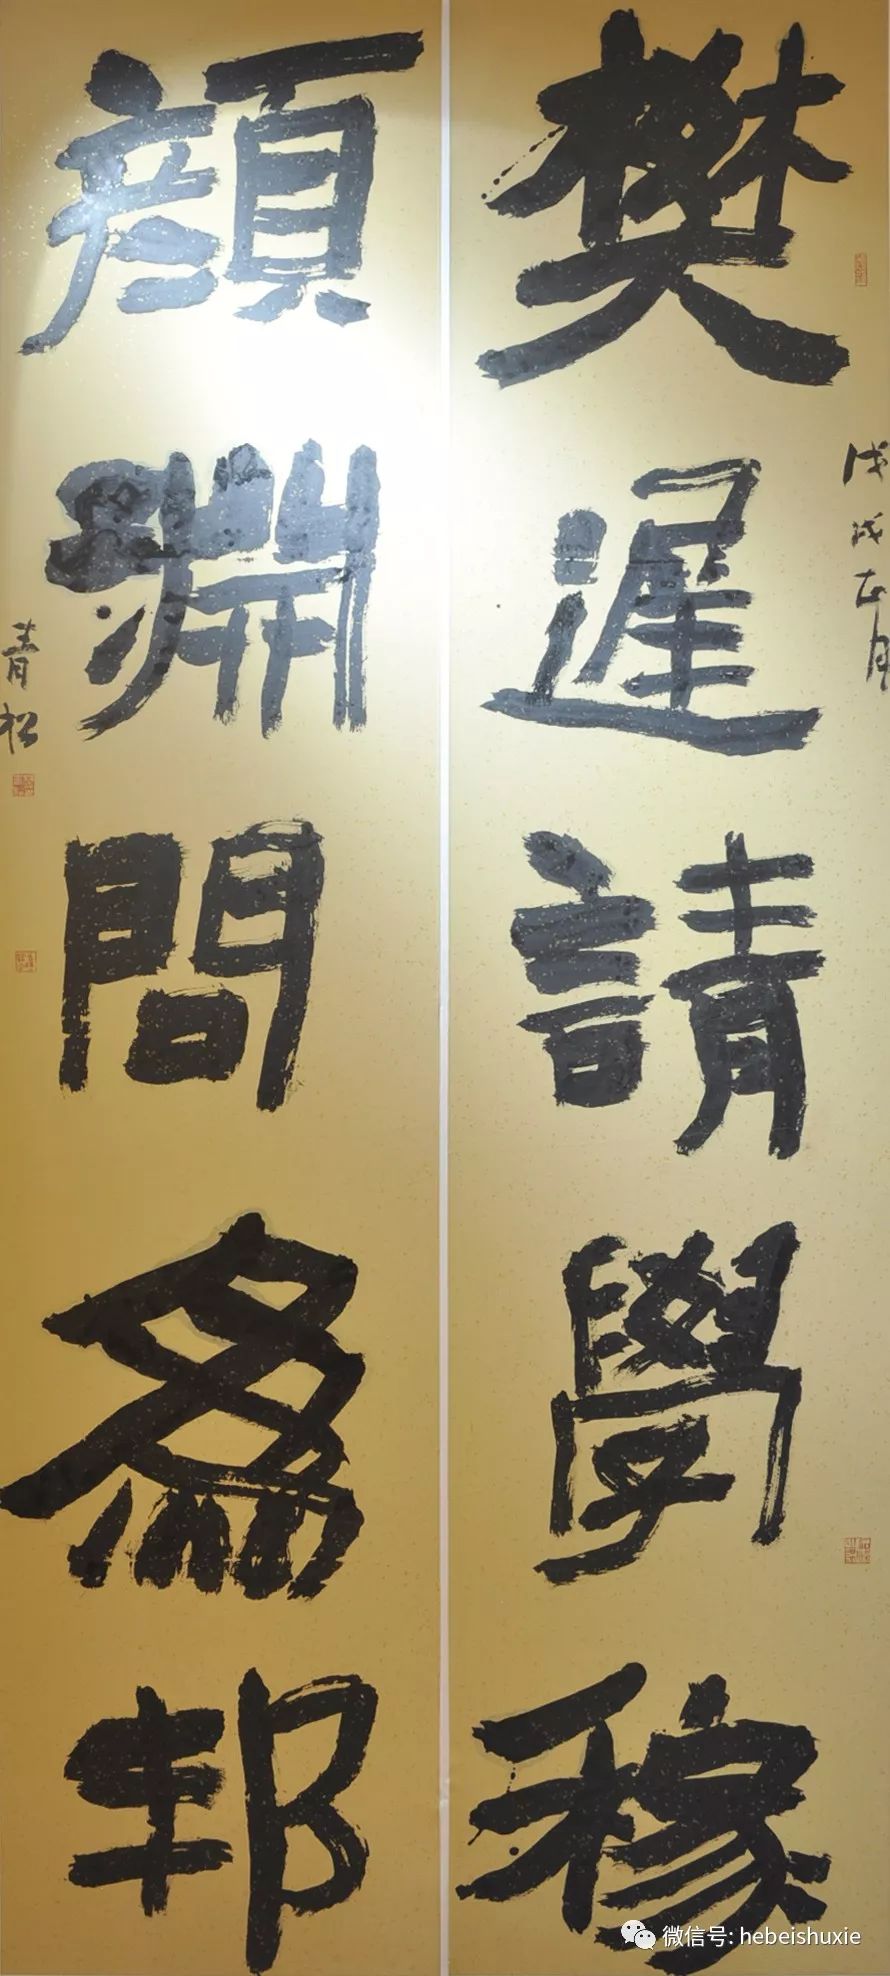 樊遲請學稼
戊戌五月
顔淵問爲邦
青松
微信号: hebeishuxie